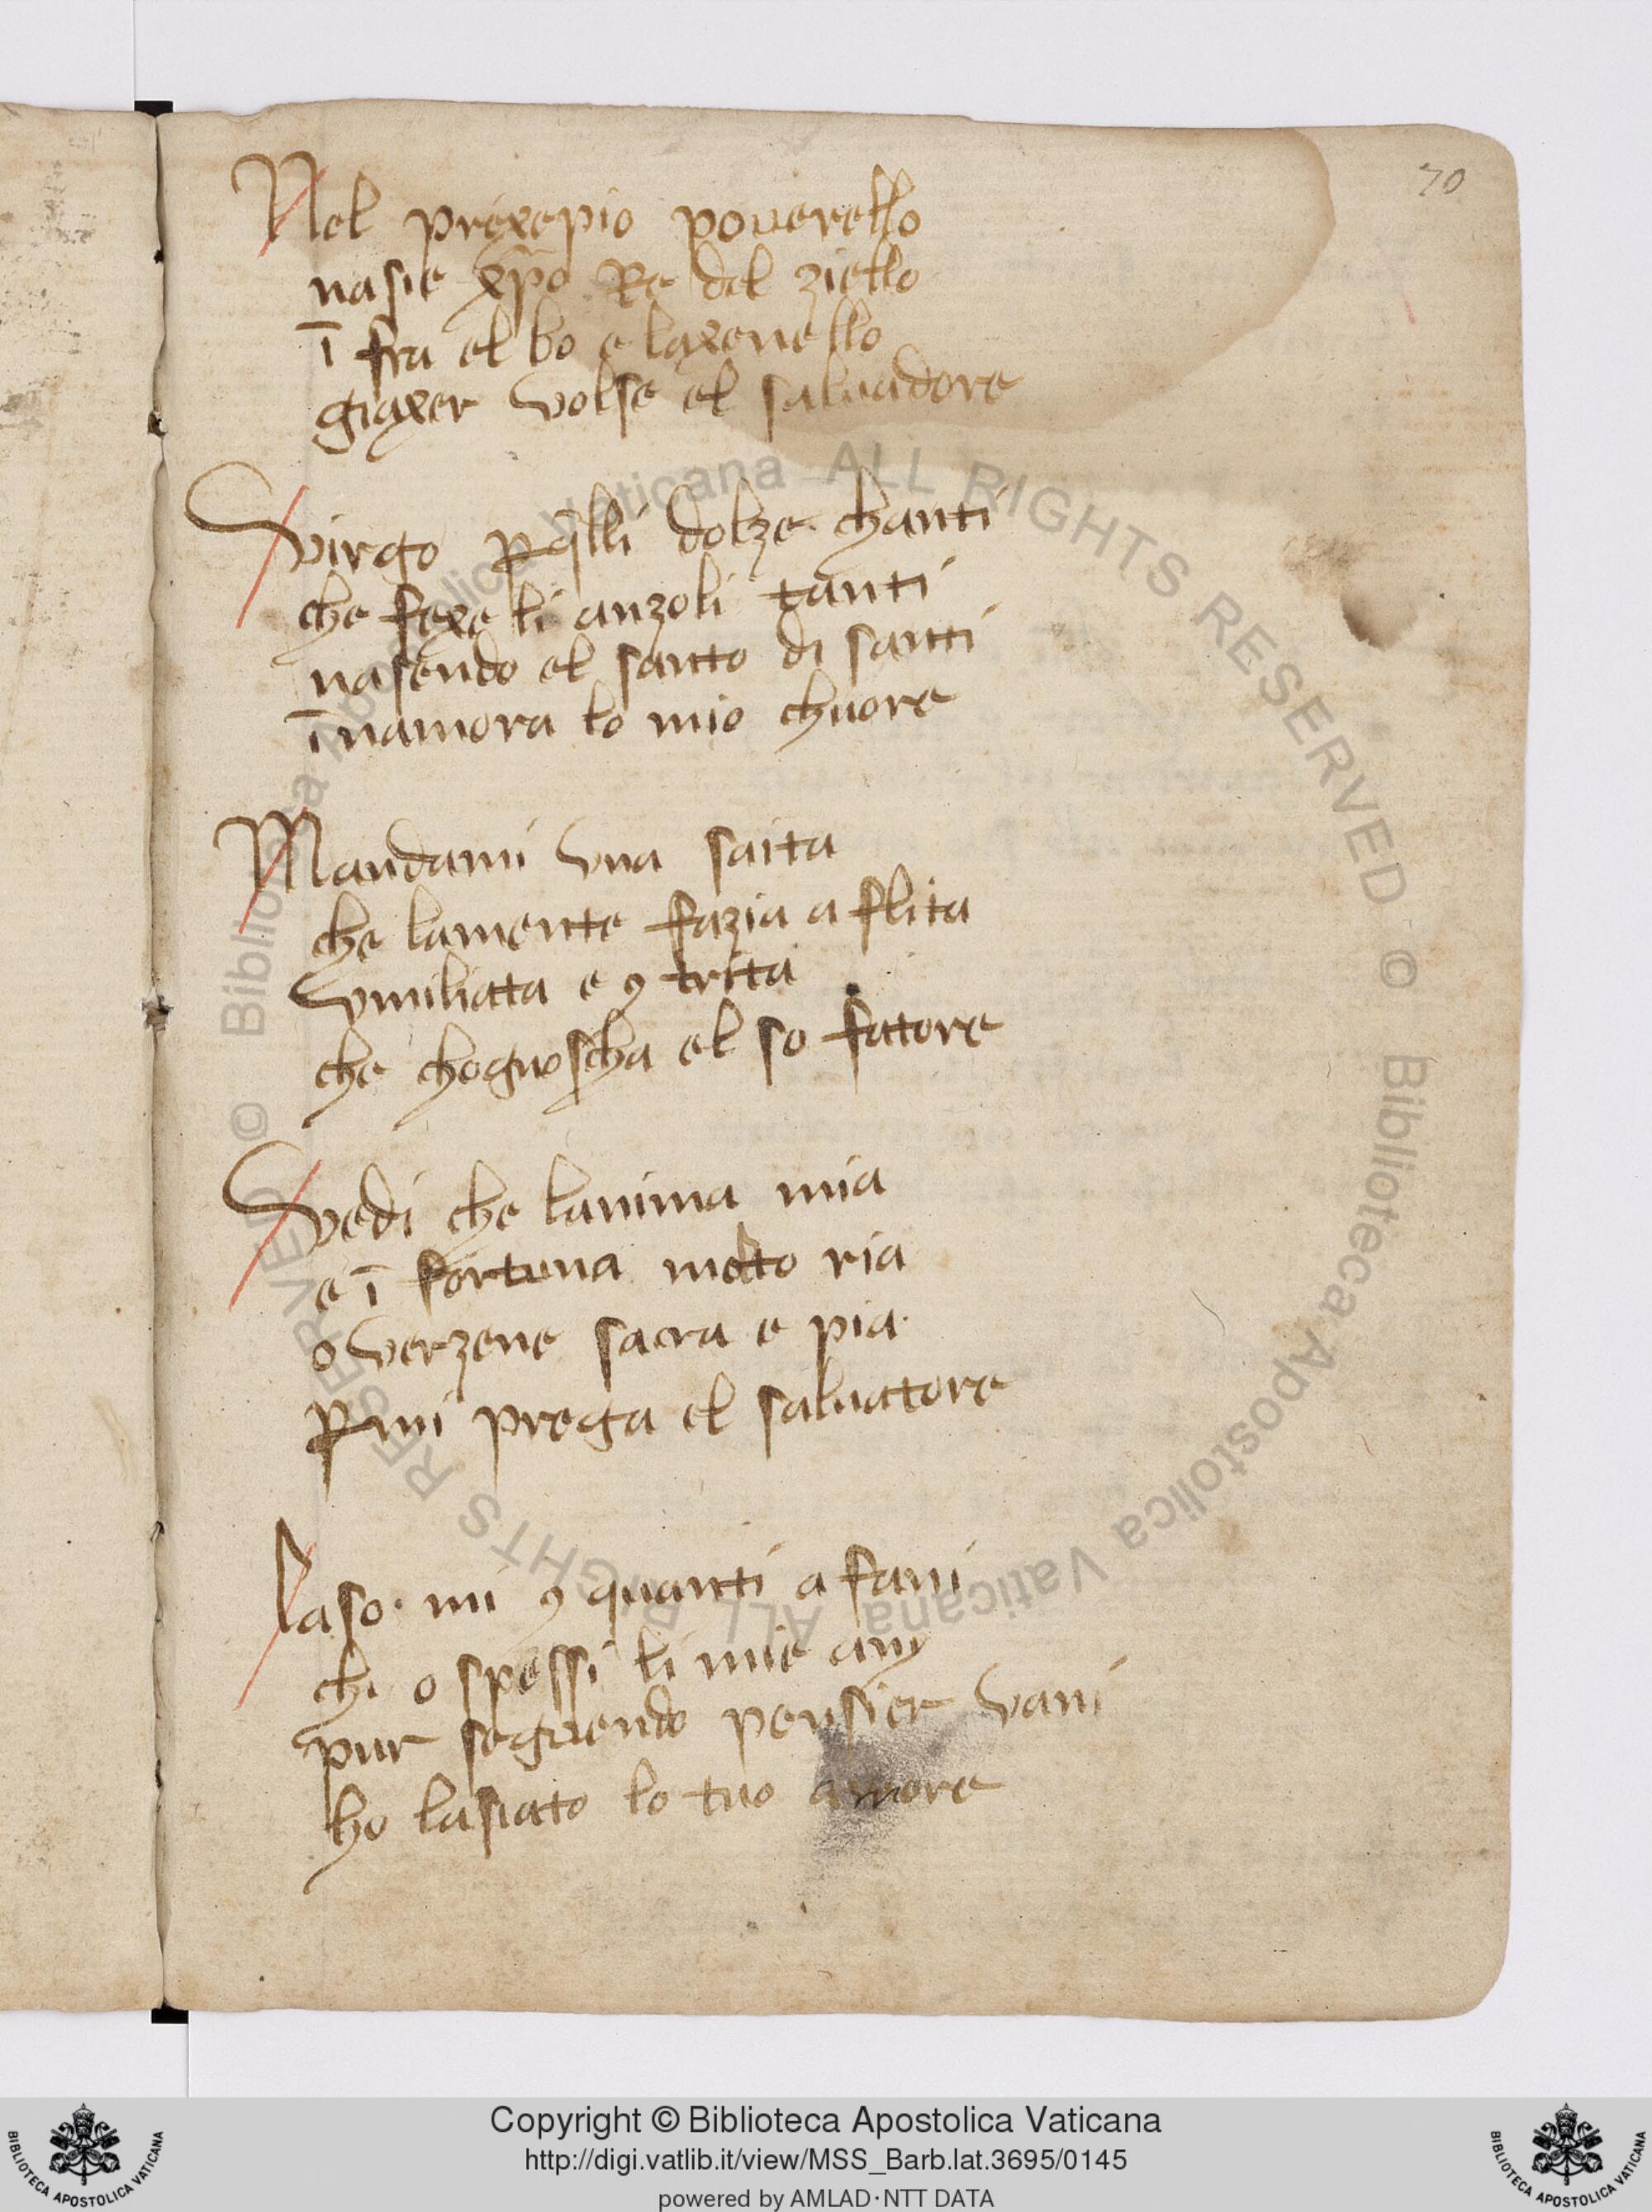 70
Nel prexepio poverello
nasie xp̄o Re del ziello
ī fra el bo e laxenello
giaxer volse el salvadore
Virgo ꝑ q̄lli dolze chanti
che fexe li anzoli tanti
nasendo el santo di santi
īnamora lo mio chuore
Mandami vna saita
che lamente fazia a flita
vmiliata e ꝯ trita
che chognoscha el so fatore
Vedi che lanima mia
e ī fortuna molto ria
o verzene sacra e pia
ꝑ mi prega el salvatore
laso mi ꝯ quanti a fani
chi o spessi li mie any
pur seguendo pensier vani
ho lasiato lo tuo amore
© Biblioteca Apostolica Vaticana ALL RIGHTS RESERVED © Biblioteca Apostolica Vaticana ALL RIGHTS RESERVED
Copyright © Biblioteca Apostolica Vaticana
http://digi.vatlib.it/view/MSS_Barb.lat.3695/0145
powered by AMLAD·NTT DATA
BIBLIOTECA APOSTOLICA VATICANA
BIBLIOTECA APOSTOLICA VATICANA